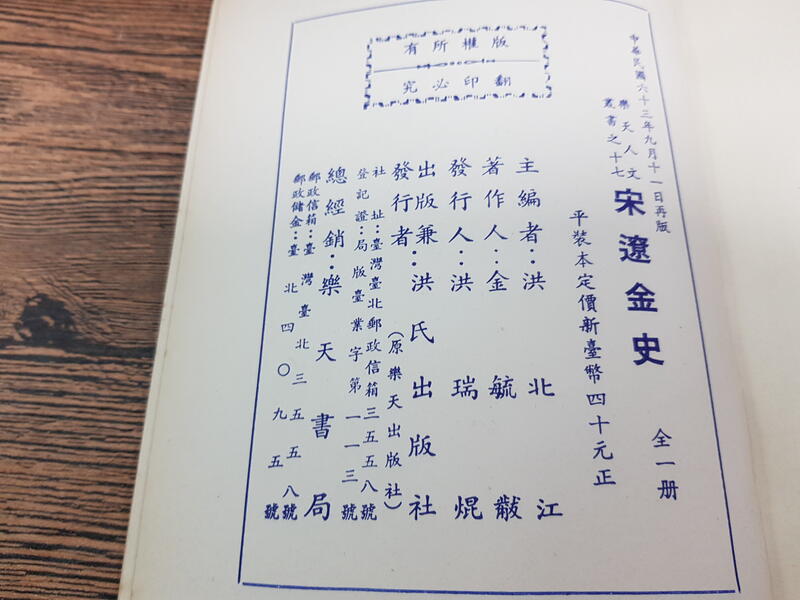 版權所有
翻印必究
中華民國六十三年九月十一日再版
樂天人文
叢書之十七
宋遼金史
全一册
平裝本定價新臺幣四十元正
主編者：洪北江
著作人：金毓黻
發行人：洪瑞焜
出版兼
發行者：洪氏出版社
（原樂天出版社）
社址：臺灣臺北郵政信箱三五五八號
登記證：局版臺業字第一一三號
總經銷：樂天書局
郵政信箱：臺灣臺北三五五八號
郵政儲金：臺北四〇九五號